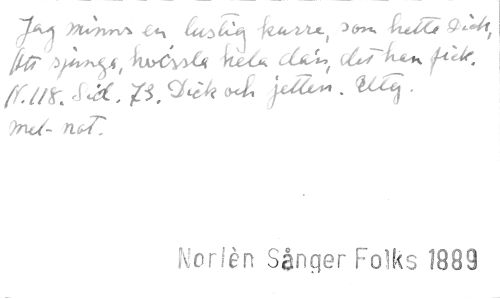 Jag minns en lustig kurre, som hette Dick,
Att sjunga, hvissla hela da'n, det han fick.
N. 118. Sid. 73. Dick och jetten. Utg.
mel-not.
Norlèn Sånger Folks 1889